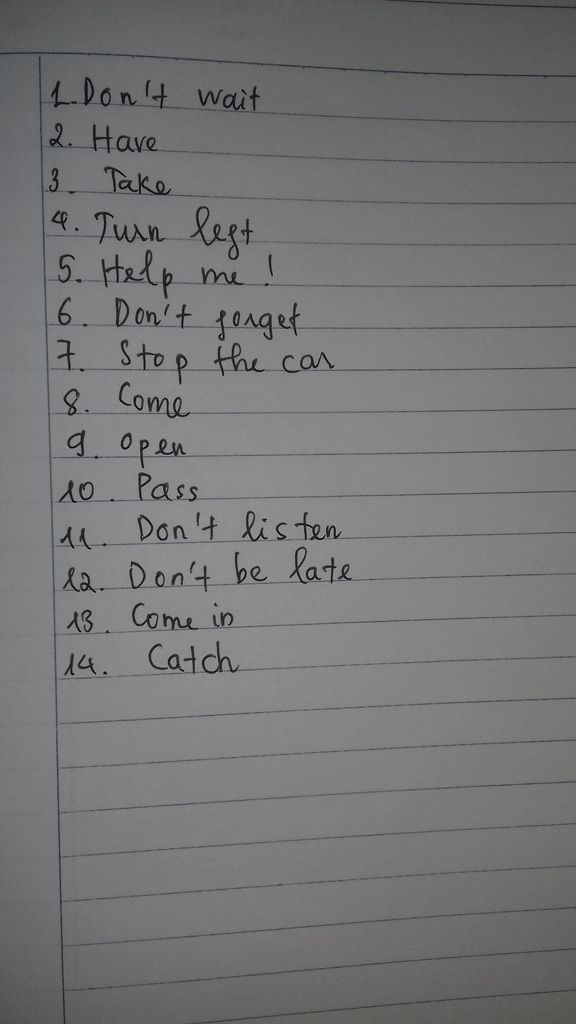 1. Don't wait
2. Have
3. Take
4. Turn left
5. Help me !
6. Don't forget
7. Stop the car
8. Come
9. open
10. Pass
11. Don't listen
12. Don't be late
13. Come in
14. Catch